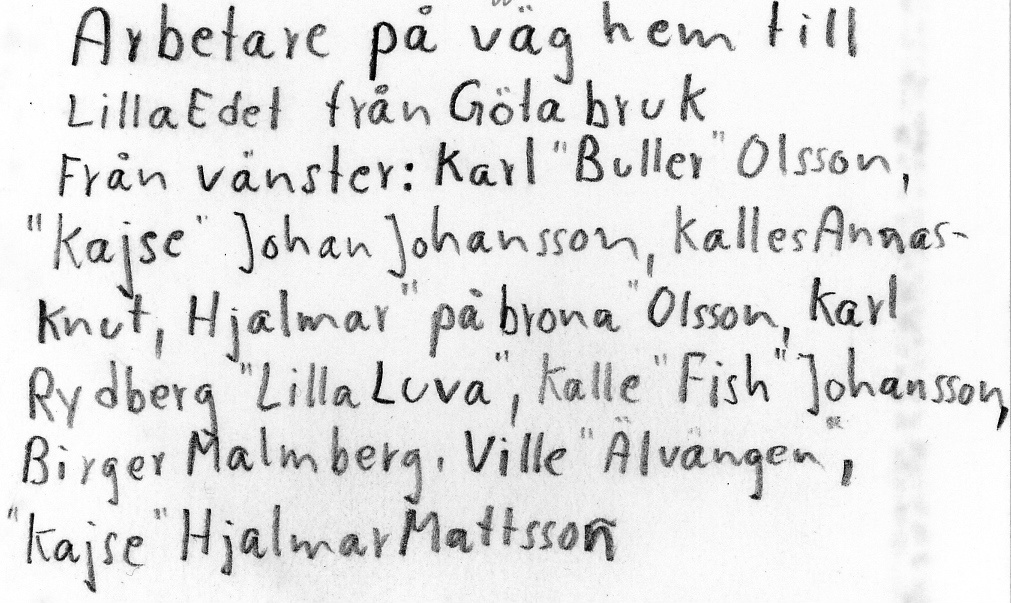 Arbetare på väg hem till
Lilla Edet från Göta bruk
Från vänster: Karl "Buller" Olsson,
"Kajse" Johan Johansson, Kalles Annas-
Knut, Hjalmar "på brona" Olsson, Karl
Rydberg "Lilla Luva", Kalle "Fish" Johansson,
Birger Malmberg, Ville "Älvängen",
"Kajse" Hjalmar Mattsson